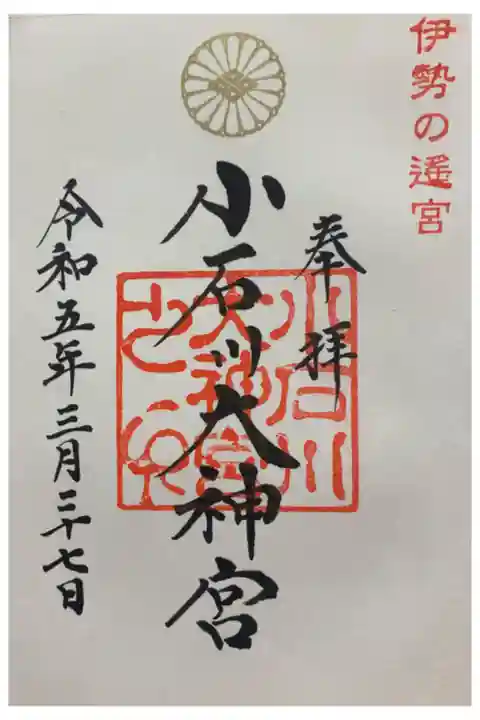 伊勢の遥宮
奉拝
小石川大神宮
小石川
大神宮
之印
令和五年三月二十七日